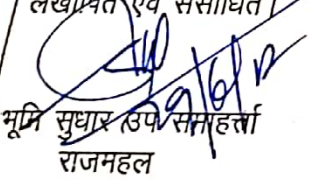 लेखापित एवं संसोधित।
भूमि सुधार उप समाहर्त्ता
राजमहल